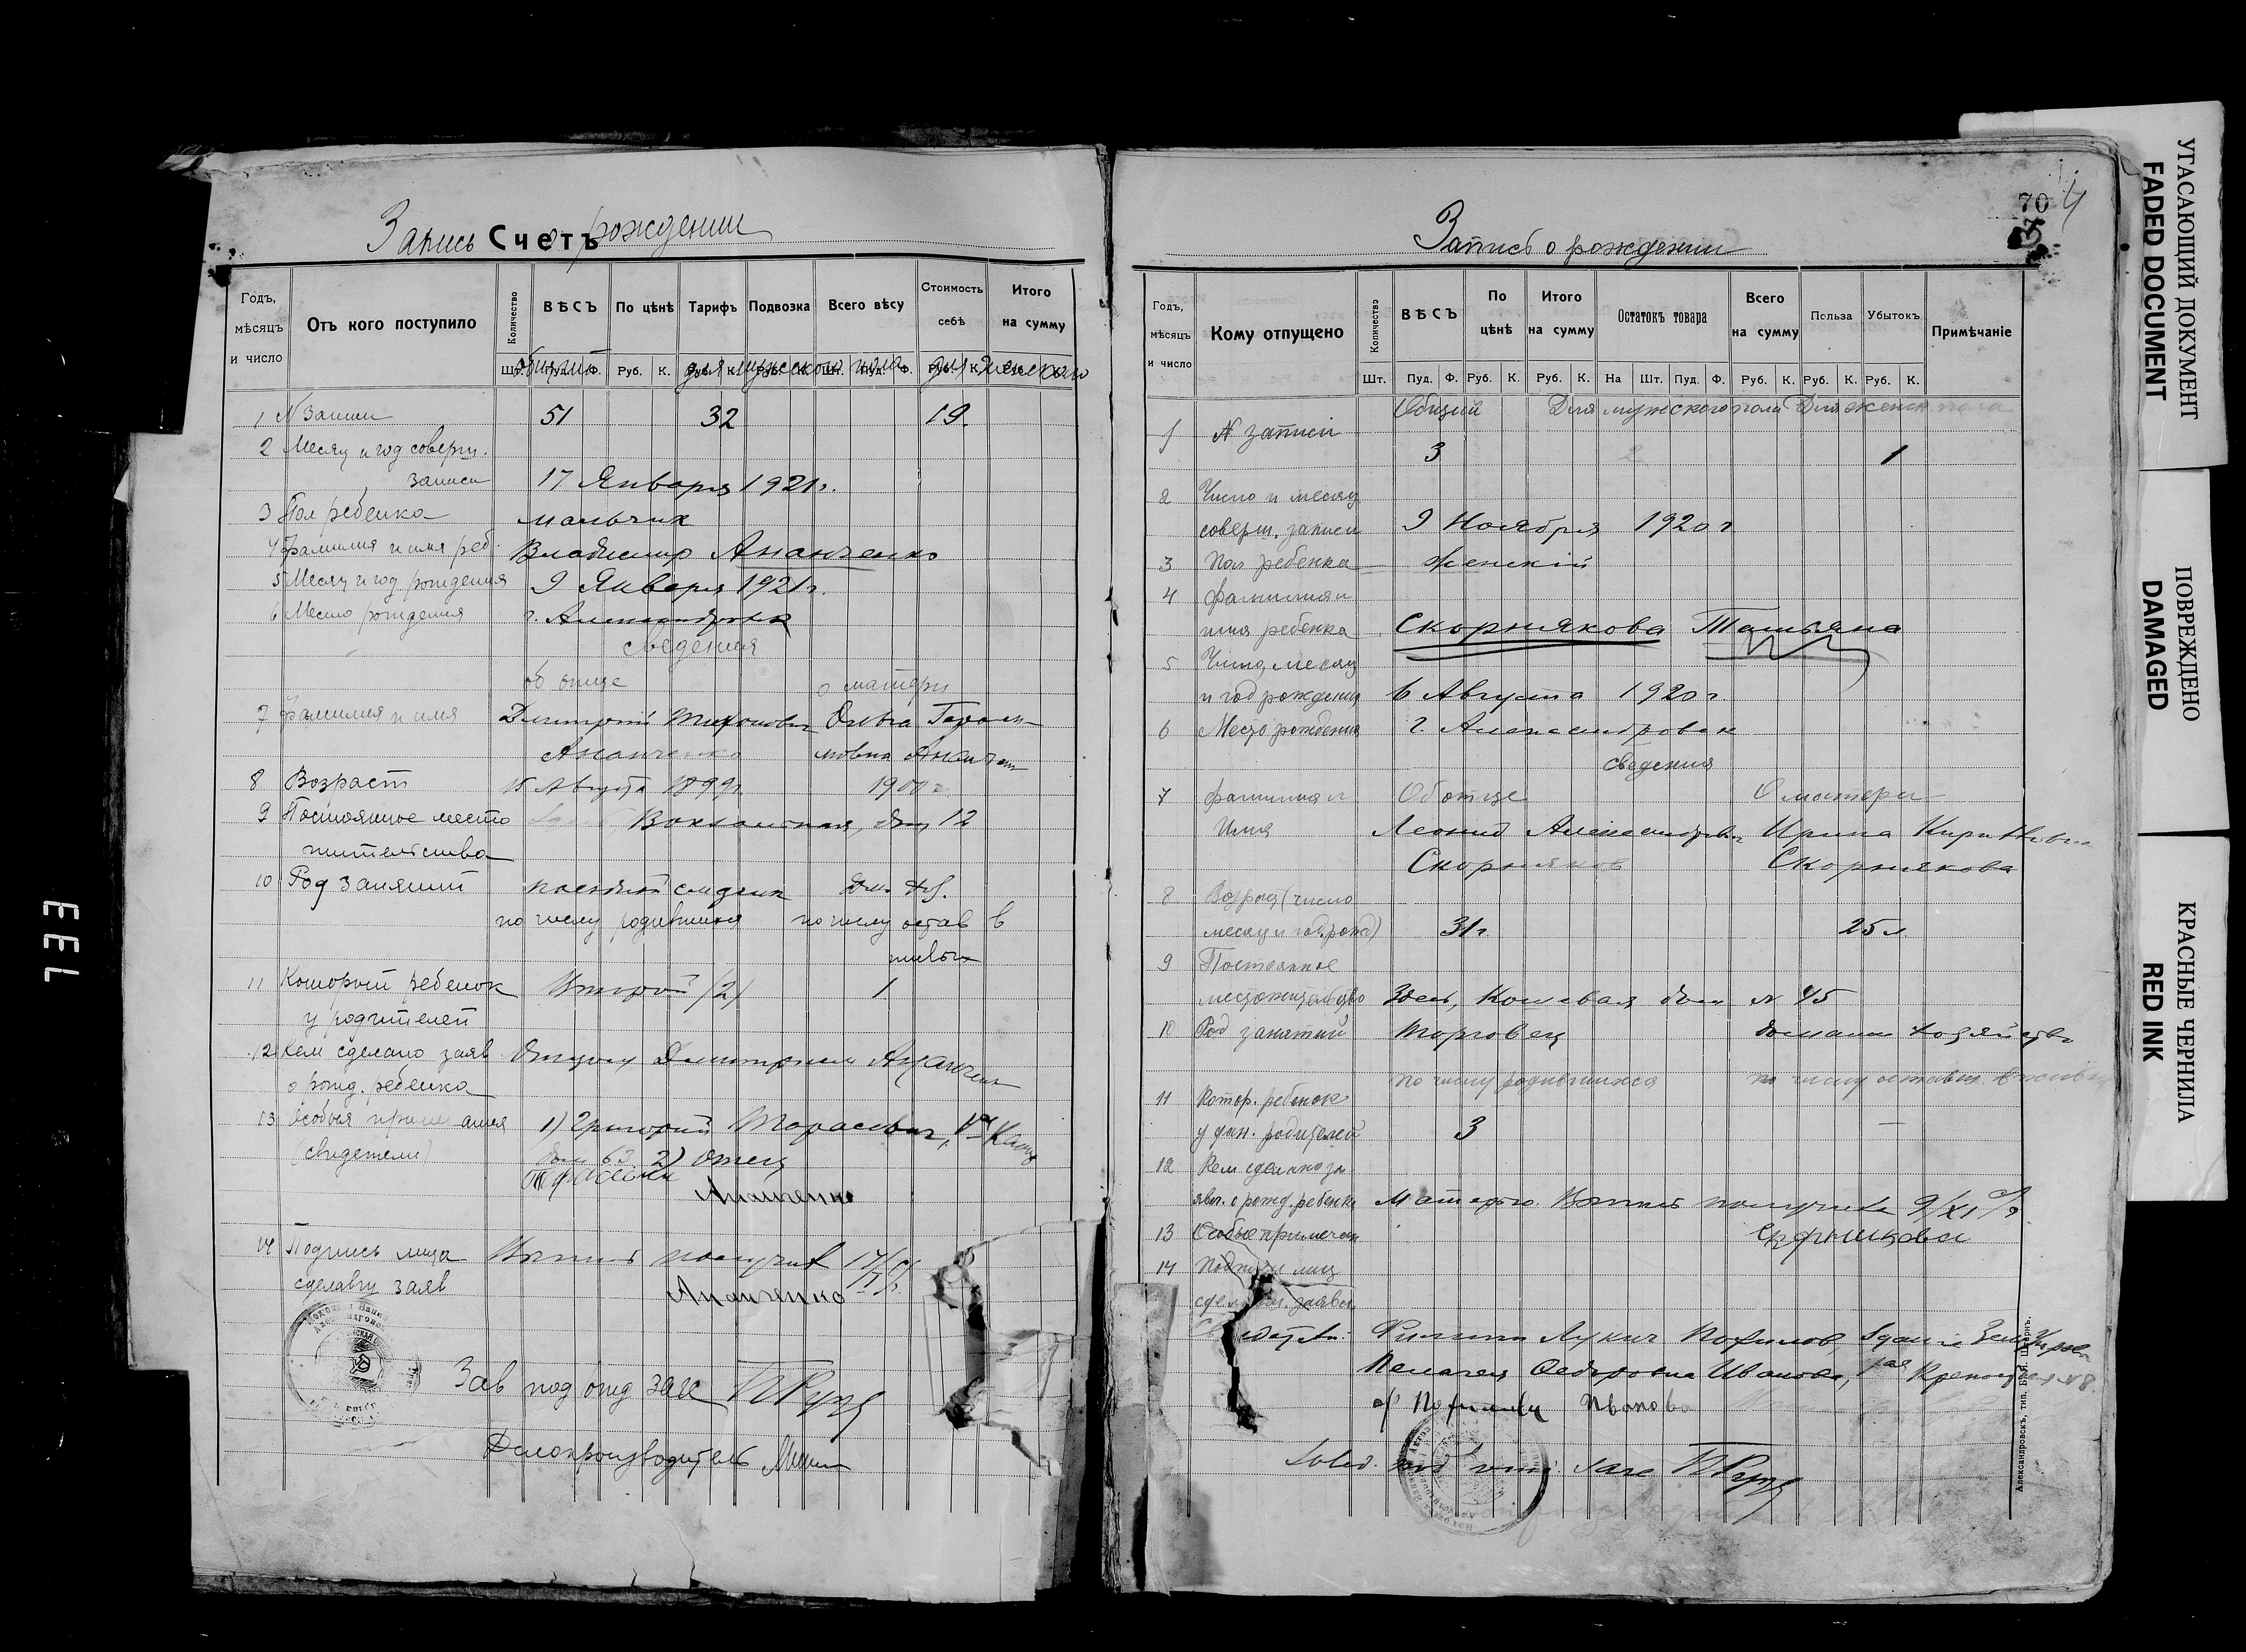 Запись Счетъ о рождении
Годъ, мѣсяцъ и число
Отъ кого поступило
Количество
ВѢСЪ
По цѣнѣ
Тарифъ
Подвозка
Всего вѣсу
Стоимость себѣ
Итого на сумму
общий для мужского пола для женского
1 N Записи 51 32 19.
2 Месяц и год соверш.
записи 17 Января 1921 г.
3 Пол ребенка мальчик
4 Фамилия и имя реб. Владимир Ананченко
5 Месяц и год рождения 9 Января 1921 г.
6 Место рождения г. Александровск
Сведения
об отце о матери
7 Фамилия и имя Дмитрий Тихонович Ольга
Ананченко
8 Возраст 15 Августа 1899 г. 1900 г.
9 Постоянное место Вокзальная, дом 12
жительства
10 Род занятий дом. хоз.
по числу родившихся по числу остав в
живых
11 Который ребенок Второй (2) 1
у родителей
12 Кем сделано заяв Отцом Дмитрием Ананченко
о рожд. ребенка
13 Особыя
(свидетели) 1) Григорий Тарасевич,
дом 63 2) Отец
Ананченко
14 Подпись лица Выпись получил
сделавш заяв Ананченко
Зав под отд Загс
Делопроизводитель
70
4
Запись о рождении
Годъ, мѣсяцъ и число
Кому отпущено
Количество
ВѢСЪ
По цѣнѣ
Итого на сумму
Остатокъ товара
Всего на сумму
Польза
Убытокъ
Примѣчаніе
Шт. Пуд. Ф. Руб. К. Руб. К. На Шт. Пуд. Ф. Руб. К. Руб. К. Руб. К.
Общий Для мужского пола Для женск. пола
1 N записи
3 2 1
2 Число и месяц
соверш. записи 9 Ноября 1920 г
3 Пол ребенка женский
4 Фамилия и
имя ребенка Скорнякова Татьяна
5 Число, месяц
и год рождения 6 Августа 1920 г.
6 Место рождения г. Александровск
Сведения
7 Фамилия и Об отце О матери
Имя Леонид Александрович Ирина Кирилловна
Скорняков Скорнякова
8 Возраст (число
месяц и год рожд) 31 г. 25 л.
9 Постоянное
местожительство Здесь, Кошевая дом N 45
10 Род занятий Торговец домашн хозяйство
по числу родившихся по числу оставш. в живых
11 Котор. ребенок
у дан. родителей 3 —
12 Кем сделано за
явл. о рожд. ребенка Матерью. Выпись получила 9/XI
13 Особые примечан Скорнякова
14 Подписи лиц
сделавш. заявл.
Свидетели: Филипп Лукич
Пелагея Федоровна Иванова,
Иванова
Завед. под отд. Загс
Александровскъ, тип. Б-вя. Штернъ.
УГАСАЮЩИЙ ДОКУМЕНТ
FADED DOCUMENT
ПОВРЕЖДЕНО
DAMAGED
КРАСНЫЕ ЧЕРНИЛА
RED INK